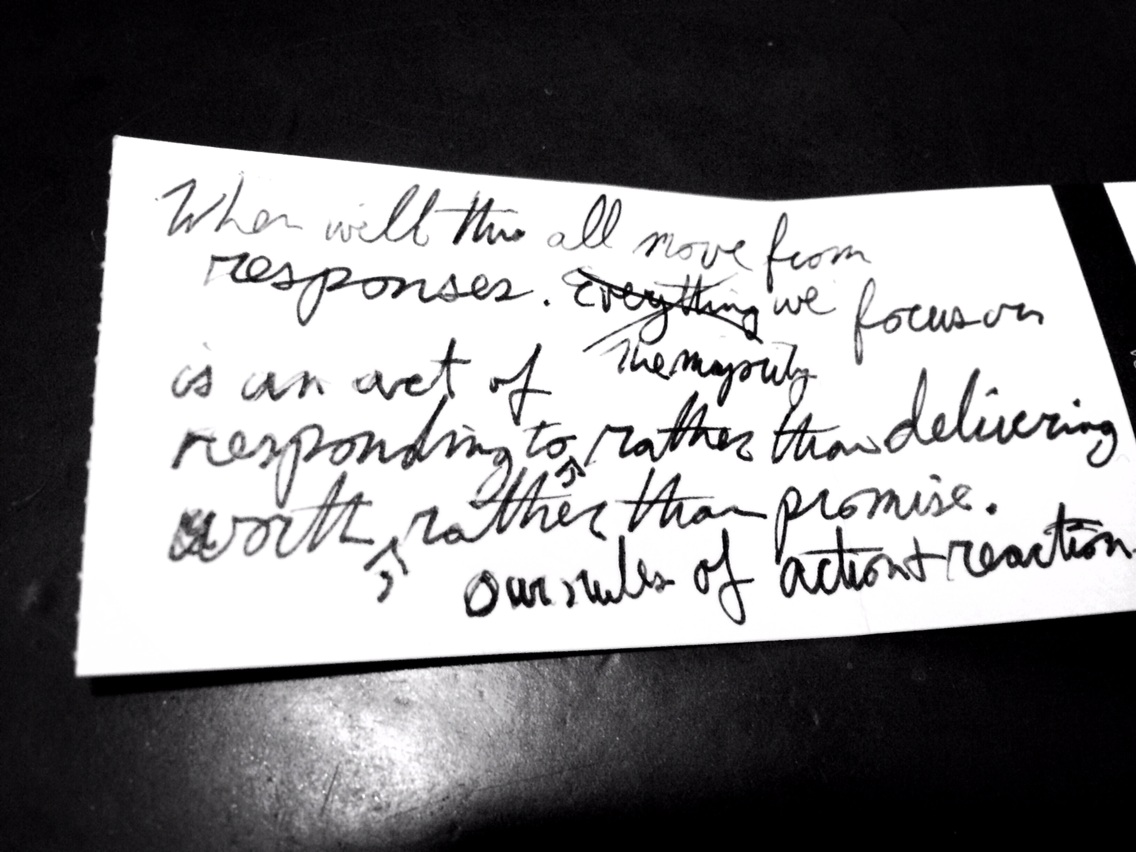 When will this all move from
responses. Everything we focus on
The majority
is an act of
responding to, rather than delivering
worth, rather than promise.
our rules of action + reaction